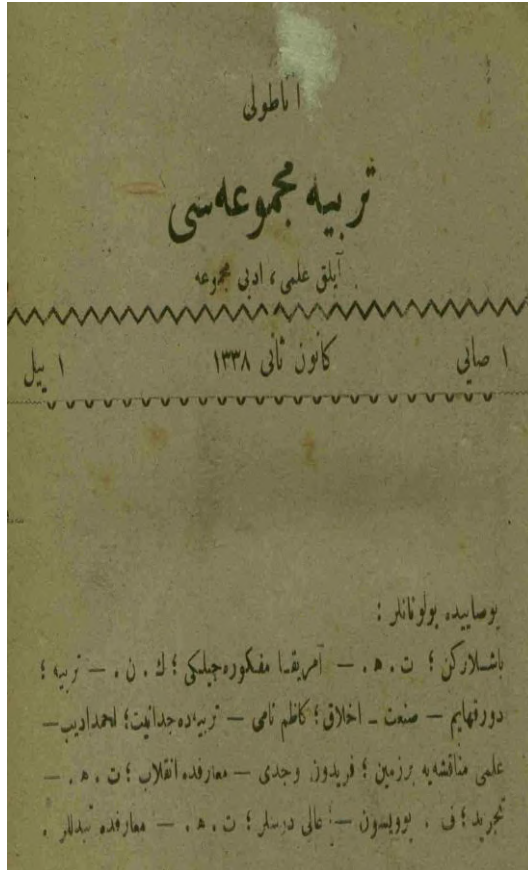 اناطولی
تربیه مجموعه‌سی
آیلق علمی ، ادبی مجموعه
۱ صایی كانون ثانی ۱۳۳۸ ۱ ییل
بوصاییده بولونانلر :
باشلاركن ؛ ت . ه . — آمریقا مفكوره‌جیلكی ؛ ك . ن . — تربیه ؛
دورقهایم — صنعت ـ اخلاق ؛ كاظم نامی — تربیه‌ده جدانیت ؛ احمد ادیب —
علمی مناقشه‌یه برزمین ؛ فریدون وجدی — معارفده انقلاب ؛ ت . ه . —
تجرید ؛ ف . بوویسون — عالی درسلر ؛ ت . ه . — معارفده تبدللر .